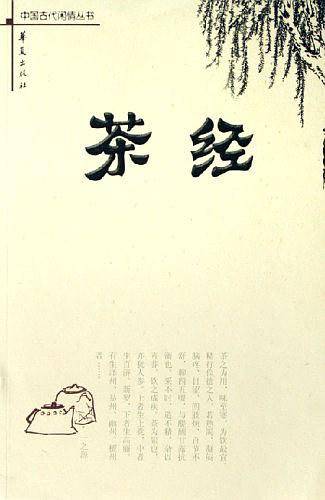 中国古代闲情丛书
华夏出版社
茶经
茶之为用，味至寒，为饮最宜
精行俭德之人，若热渴、凝闷、
脑疼、目涩、四肢烦、百节不
舒，聊四五啜，与醍醐甘露抗
衡也。采不时，造不精，杂以
卉莽，饮之成疾。茶为累也，
亦犹人参。上者生上党，中者
生百济、新罗，下者生高丽。
有生泽州、易州、幽州、檀州
者……
之源